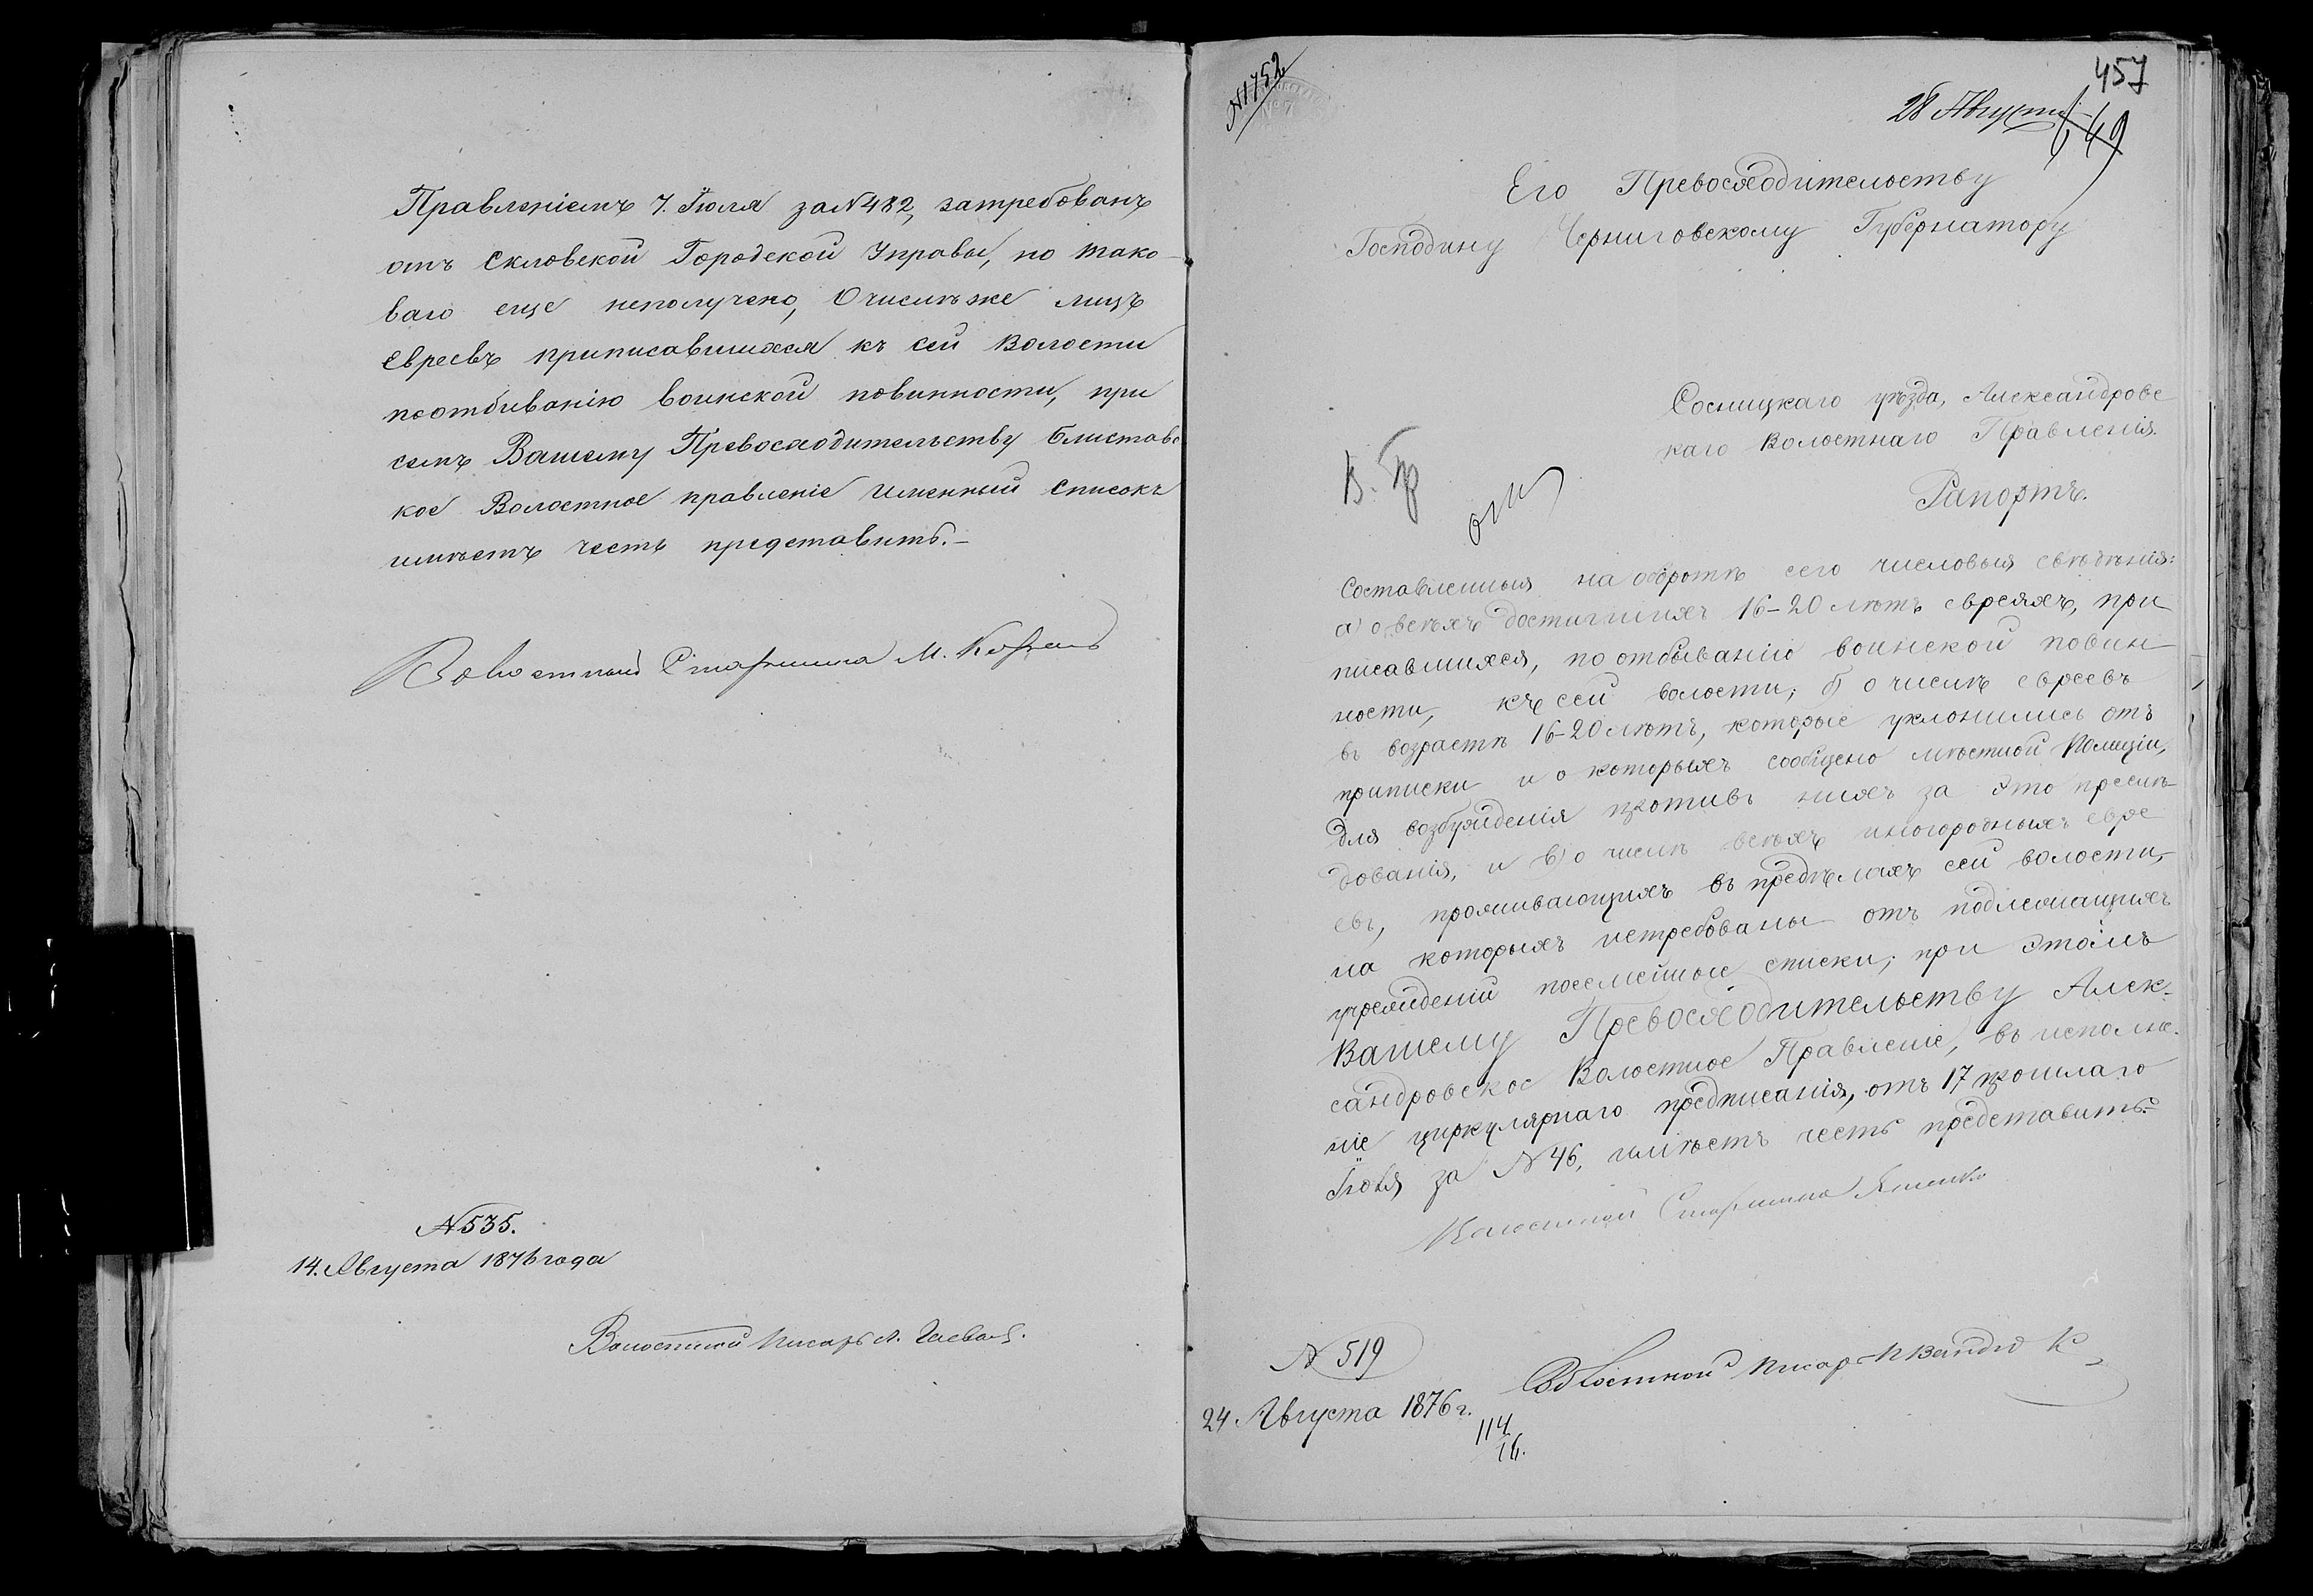 Правленіемъ 7. Іюля за №482, затребованъ
отъ Скловской Городской Управы, но тако-
ваго еще неполучено, О числѣ же лицъ
Евреевъ приписавшихся къ сей Волости
поотбиванію воинской повинности, при
семъ Вашему Превосходительству Блистовс
кое Волостное правленіе именный списокъ
имѣетъ честь представить.-
Волостный Старшина М.
№535.
14. Августа 1876 года
Волостной Писарь
№1752
457
28 Августа
649
Его Превосходительству
Господину Черниговскому Губернатору
Сосницкаго уѣзда, Александровс
каго Волостнаго Правленія.
Рапортъ.
Составленныя на оборотѣ сего числовыя свѣдѣнія:
а) о всѣхъ достигшихъ 16-20 лѣтъ евреяхъ, при
писавшихся, по отбыванію воинской повин
ности, къ сей волости; б) о числѣ евреевъ
въ возрастѣ 16-20 лѣтъ, которые уклонились отъ
приписки и о которыхъ сообщено мѣстной Полиціи,
для возбужденія противъ нихъ за это преслѣ-
дованія, и в) о числѣ всѣхъ иногородныхъ евре
евъ, проживающихъ въ предѣлахъ сей волости,
на которыхъ истребованы отъ подлежащихъ
учрежденій посемейные списки; при этомъ
Вашему Превосходительству Алек-
сандровское Волостное Правленіе, въ исполне-
ніе циркулярнаго предписанія, отъ 17 прошлаго
Іюля за №46, имѣетъ честь представить.-
Волостной Старшина Яшенко
№519
24 Августа 1876 г.
Волостной писарь
114
76.